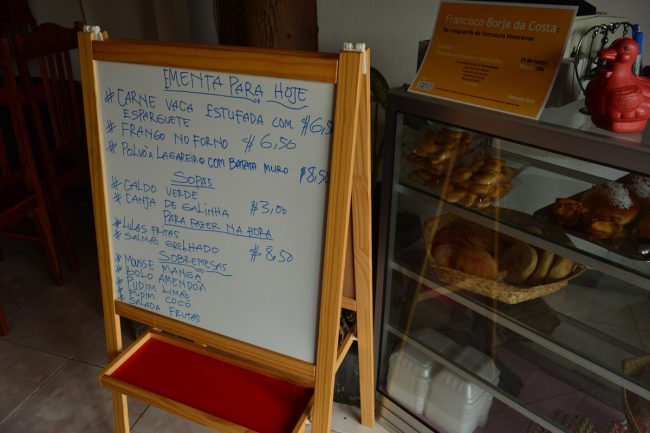 EMENTA PARA HOJE
# CARNE VACA ESTUFADA COM $6,50
ESPARGUETE
# FRANGO NO FORNO $6,50
# POLVO À LAGAREIRO COM BATATA MURO $8,50
SOPAS
# CALDO VERDE
# CANJA DE GALINHA $3,00
PARA FAZER NA HORA
# LULAS FRITAS
# SALMÃO GRELHADO $8,50
SOBREMESAS
# MOUSSE MANGA
# BOLO AMENDOA
# PUDIM LIMÃO
# PUDIM COCO
# SALADA FRUTAS
Francisco Borja da Costa
Na vanguarda da literatura timorense